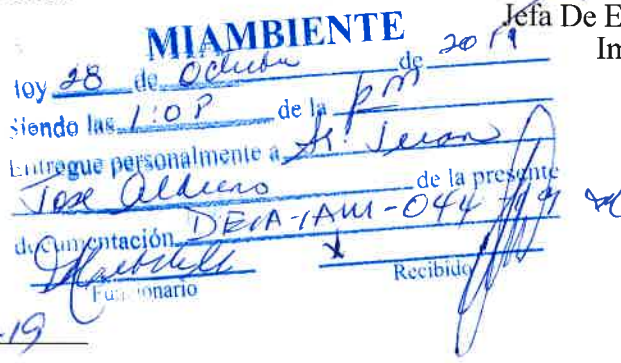 Jefa De E
Im
MIAMBIENTE
Hoy 28 de Octubre de 2019
Siendo las 1:0P de la pm
Entregue personalmente a Sr. Juan
Jose de la presente
documentación DEIA-IAM-044-19
Funcionario Recibido
-19